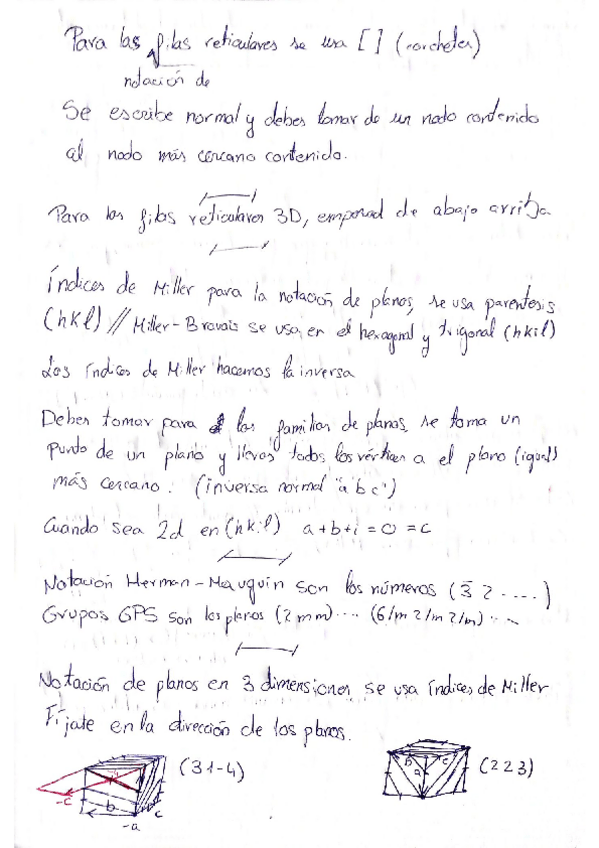 Para las filas reticulares se usa [ ] (corchetes)
notación de
Se escribe normal y debes tomar de un nodo contenido
al nodo más cercano contenido.
Para las filas reticulares 3D, empezad de abajo arriba
Índices de Miller para la notación de planos, se usa parentesis
(hkl) // Miller-Bravais se usa en el hexagonal y trigonal (hkil)
Los índices de Miller hacemos la inversa
Debes tomar para las familias de planos, se toma un
punto de un plano y llevas todos los vértices a el plano (igual)
más cercano. (inversa normal "a b c")
Cuando sea 2d en (hkil) a+b+i=0=c
Notación Herman-Mauguin son los números (3̄ 2 ....)
Grupos GPS son los planos (2mm)... (6/m 2/m 2/m)...
Notación de planos en 3 dimensiones se usa índices de Miller
Fíjate en la dirección de los planos.
(31-4) (223)
b c
a
-c
b c
-a